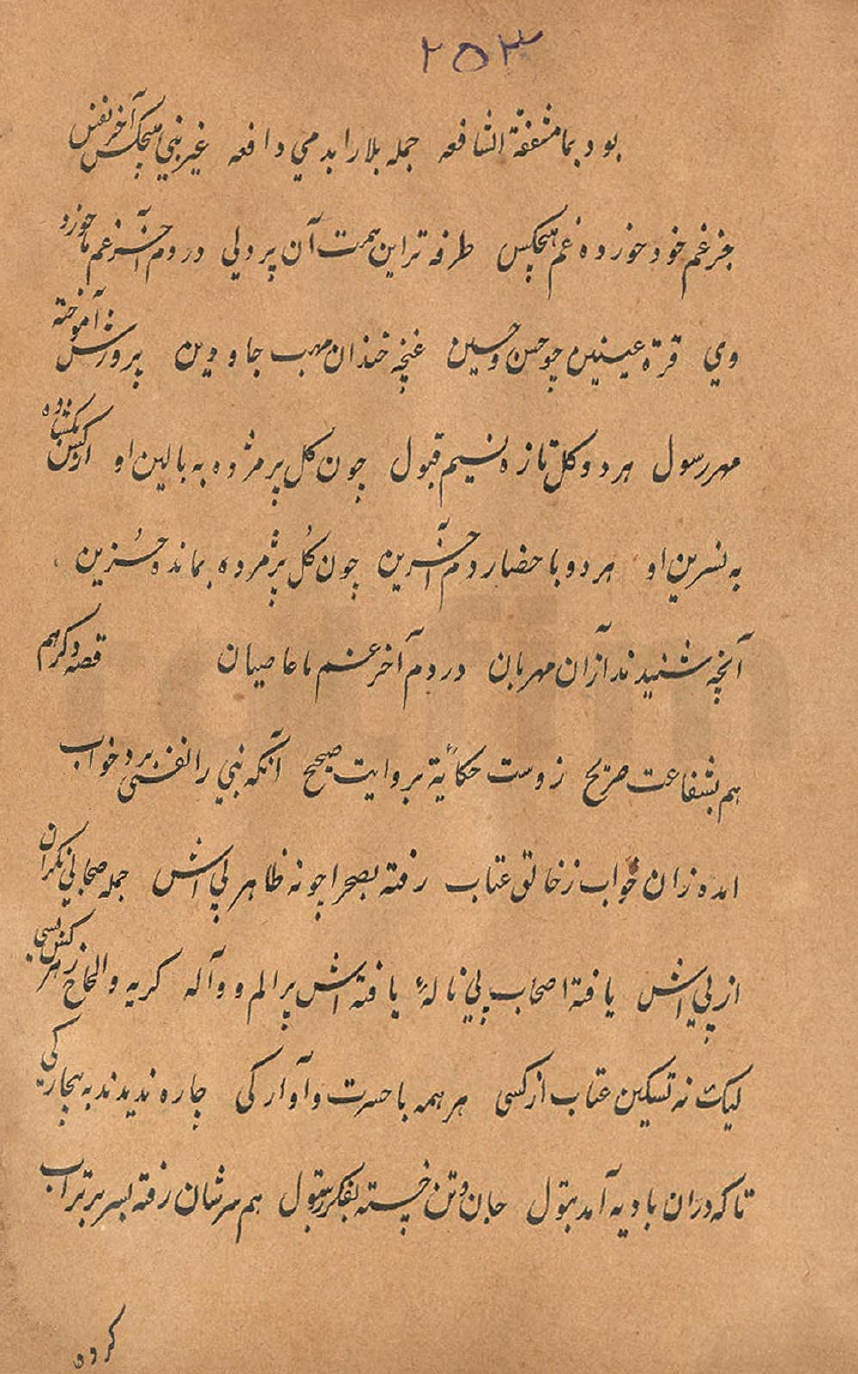 ۲۵۳
بود بما مشفقة الشافعه جمله بلا را بدمی دافعه غیر نبی هیچکس آخر نفس
جز غم خود خورده غم هیچکس طرفه تر این همت آن پر دلی در دم آخر غم ما خورد
وی قرة عینین چو حسن و حسین غنچه خندان مهب جاودین پرورش آموخته
مهر رسول هر دو گل تازه نسیم قبول چون گل پژمرده به بالین او
به نسرین او هر دو باحضار دم آخرین چون گُل پژمرده بمانده حُزین
آنچه شنیدند از آن مهربان در دم آخر غم ما عاصیان قصه دگر هم
هم بشفاعت صریح زوست حکایة بروایت صحیح آنکه نبی را نفسی برد خواب
امده زان خواب ز خالق عتاب رفته بصحرا چو نه ظاهر پی اش جمله صحابی نگران
از پی اش یافته اصحاب پی ناله یافته اش پر الم و واله گریه و الحاح ز هر
لیک نه تسکین عتاب از کسی هر همه با حسرت و آوارگی چاره ندیدند به بیچارگی
تا که دران بادیه آمد بتول جان و تن خسته بفکر رسول هم سر شان رفته بسر بر تراب
کرده